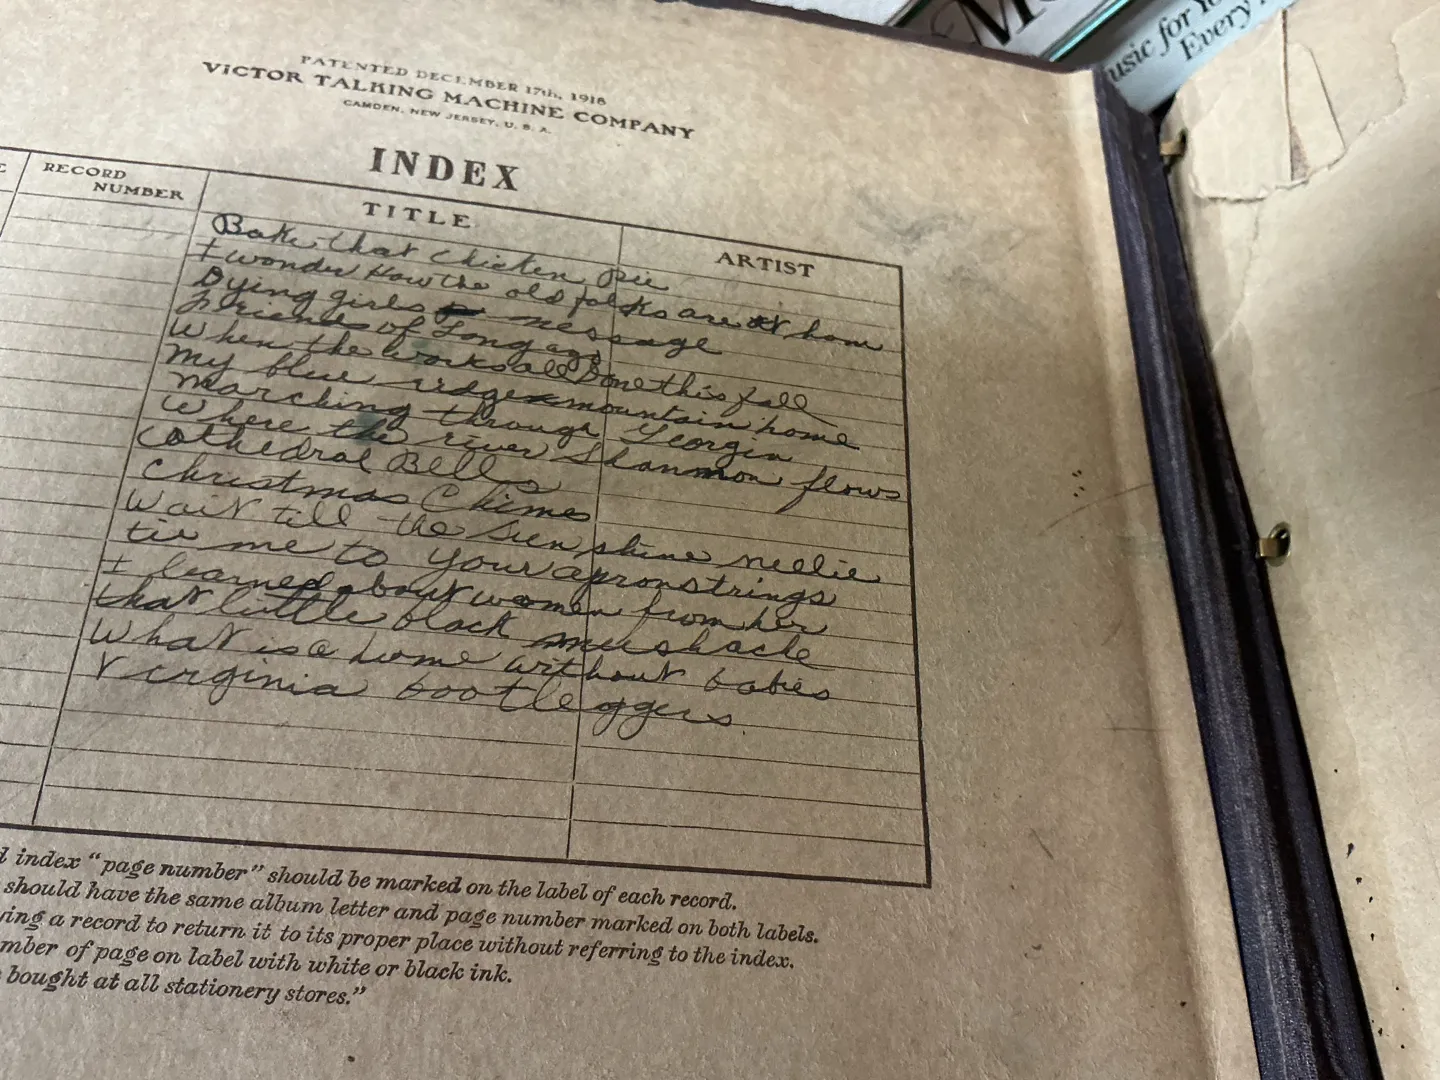 Music for Yo
Every
PATENTED DECEMBER 17th, 1918
VICTOR TALKING MACHINE COMPANY
CAMDEN, NEW JERSEY, U. S. A.
INDEX
RECORD NUMBER
TITLE
ARTIST
Bake that Chicken Pie
I wonder How the old folks are at home
Dying girls message
Friends of Long ago
When the works all Done this fall
My blue ridge mountain home
Marching through Georgia
Where the river Shannon flows
Cathedral Bells
Christmas Chimes
Wait till the Sun shine nellie
tie me to your apron strings
I learned about women from her
that little black mushache
What is a home without babies
Virginia bootleggers
d index "page number" should be marked on the label of each record.
should have the same album letter and page number marked on both labels.
ying a record to return it to its proper place without referring to the index.
mber of page on label with white or black ink.
bought at all stationery stores."